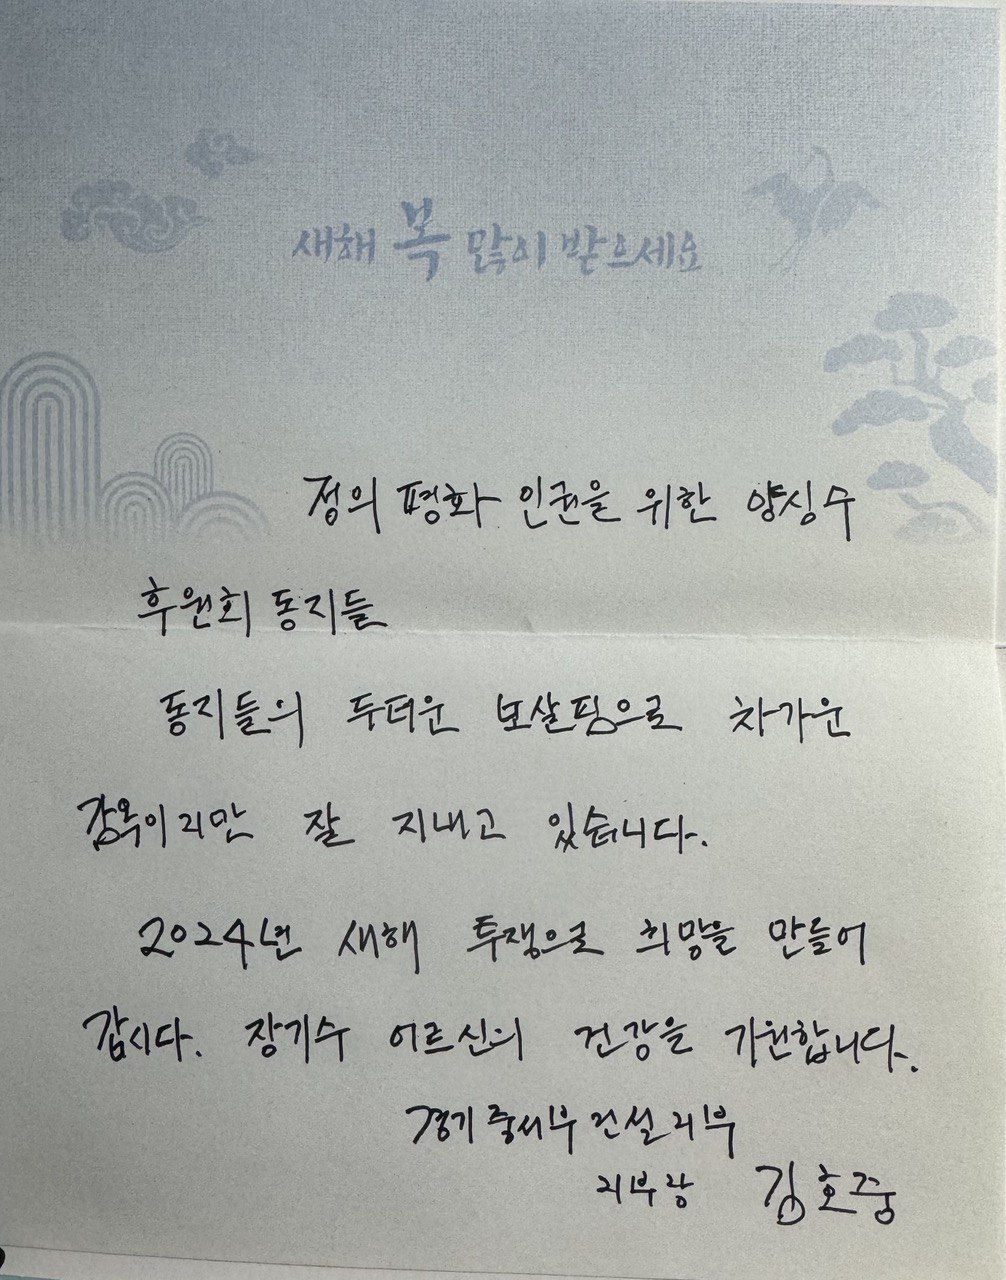 새해 복 많이 받으세요
정의 평화 인권을 위한 양심수
후원회 동지들
동지들의 두터운 보살핌으로 차가운
감옥이지만 잘 지내고 있습니다.
2024년 새해 투쟁으로 희망을 만들어
갑시다. 장기수 어르신의 건강을 기원합니다.
경기중서부건설지부
지부장 김호중